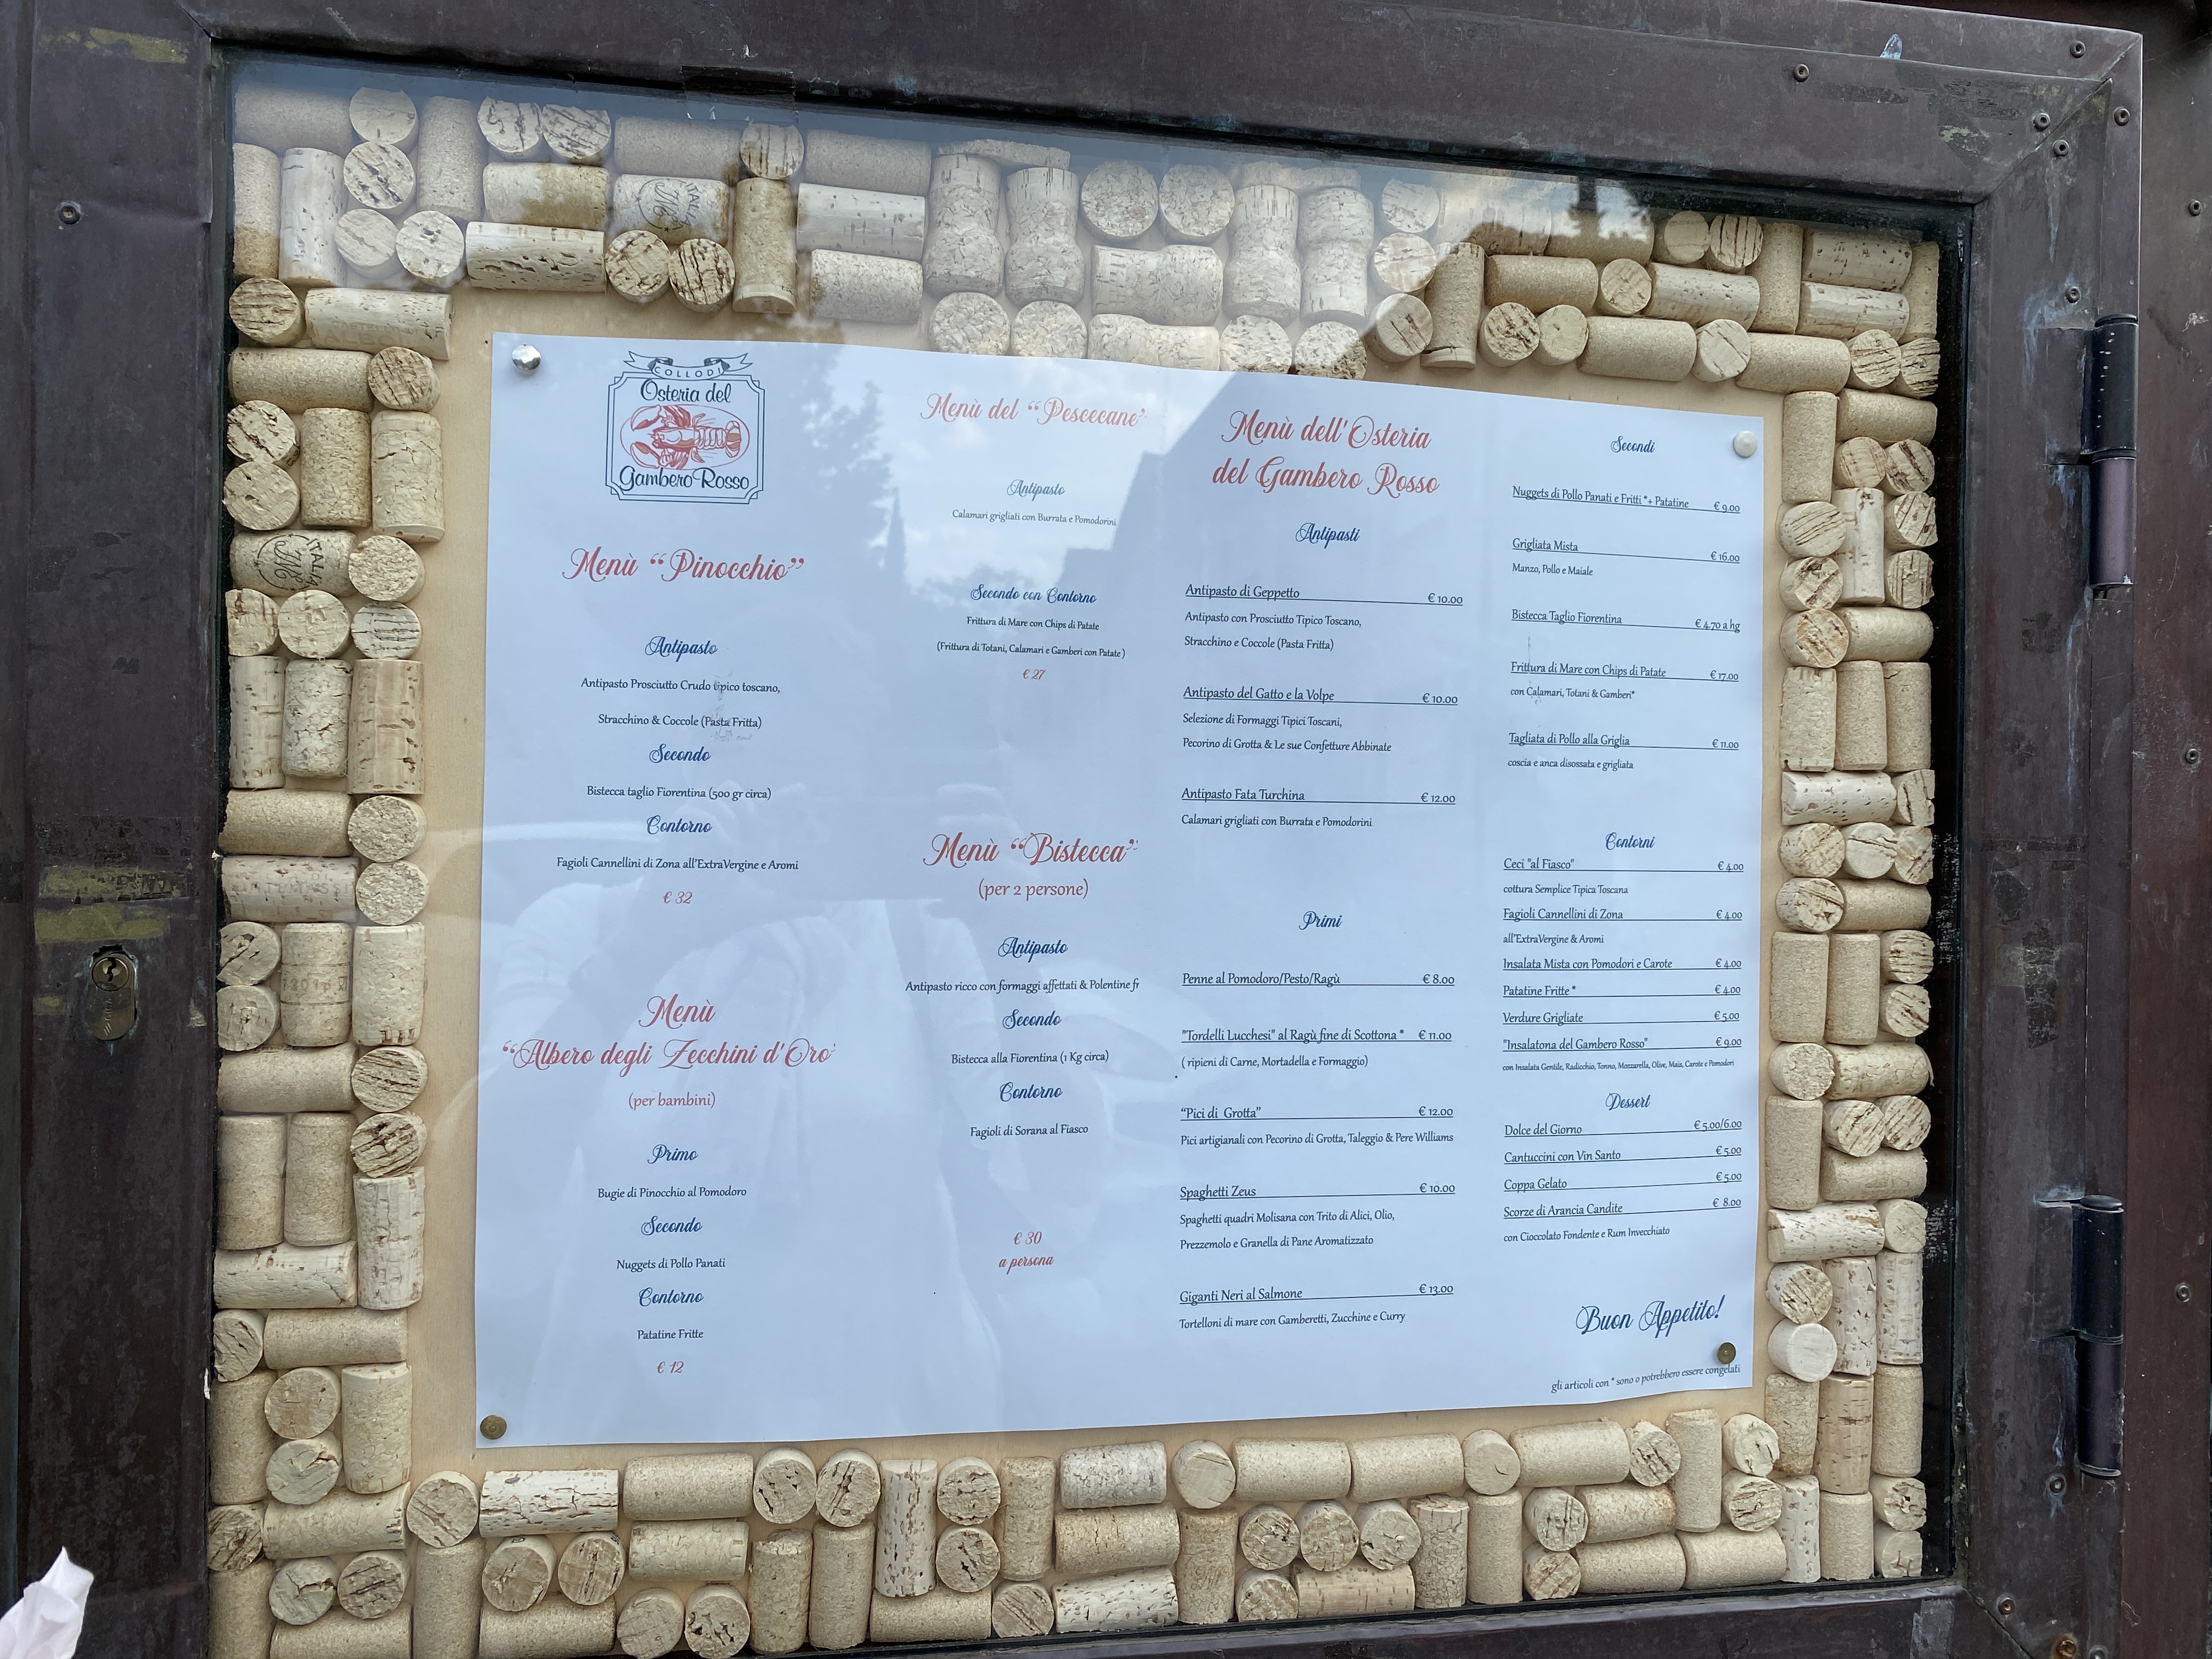 COLLODI
Osteria del
Gambero Rosso
Menù “Pinocchio”
Antipasto
Antipasto Prosciutto Crudo tipico toscano,
Stracchino & Coccole (Pasta Fritta)
Secondo
Bistecca taglio Fiorentina (500 gr circa)
Contorno
Fagioli Cannellini di Zona all'ExtraVergine e Aromi
€ 32
Menù
“Albero degli Zecchini d'Oro”
(per bambini)
Primo
Bugie di Pinocchio al Pomodoro
Secondo
Nuggets di Pollo Panati
Contorno
Patatine Fritte
€ 12
Menù del “Pescecane”
Antipasto
Calamari grigliati con Burrata e Pomodorini
Secondo con Contorno
Frittura di Mare con Chips di Patate
(Frittura di Totani, Calamari e Gamberi con Patate )
€ 27
Menù “Bistecca”
(per 2 persone)
Antipasto
Antipasto ricco con formaggi affettati & Polentine fr
Secondo
Bistecca alla Fiorentina (1 Kg circa)
Contorno
Fagioli di Sorana al Fiasco
€ 30
a persona
Menù dell'Osteria
del Gambero Rosso
Antipasti
Antipasto di Geppetto € 10.00
Antipasto con Prosciutto Tipico Toscano,
Stracchino e Coccole (Pasta Fritta)
Antipasto del Gatto e la Volpe € 10.00
Selezione di Formaggi Tipici Toscani,
Pecorino di Grotta & Le sue Confetture Abbinate
Antipasto Fata Turchina € 12.00
Calamari grigliati con Burrata e Pomodorini
Primi
Penne al Pomodoro/Pesto/Ragù € 8.00
"Tordelli Lucchesi" al Ragù fine di Scottona * € 11.00
( ripieni di Carne, Mortadella e Formaggio)
“Pici di Grotta” € 12.00
Pici artigianali con Pecorino di Grotta, Taleggio & Pere Williams
Spaghetti Zeus € 10.00
Spaghetti quadri Molisana con Trito di Alici, Olio,
Prezzemolo e Granella di Pane Aromatizzato
Giganti Neri al Salmone € 13.00
Tortelloni di mare con Gamberetti, Zucchine e Curry
Secondi
Nuggets di Pollo Panati e Fritti *+ Patatine € 9.00
Grigliata Mista € 16.00
Manzo, Pollo e Maiale
Bistecca Taglio Fiorentina € 4.70 a hg
Frittura di Mare con Chips di Patate € 17.00
con Calamari, Totani & Gamberi*
Tagliata di Pollo alla Griglia € 11.00
coscia e anca disossata e grigliata
Contorni
Ceci "al Fiasco" € 4.00
cottura Semplice Tipica Toscana
Fagioli Cannellini di Zona € 4.00
all'ExtraVergine & Aromi
Insalata Mista con Pomodori e Carote € 4.00
Patatine Fritte * € 4.00
Verdure Grigliate € 5.00
"Insalatona del Gambero Rosso" € 9.00
con Insalata Gentile, Radicchio, Tonno, Mozzarella, Olive, Mais, Carote e Pomodori
Dessert
Dolce del Giorno € 5.00/6.00
Cantuccini con Vin Santo € 5.00
Coppa Gelato € 5.00
Scorze di Arancia Candite € 8.00
con Cioccolato Fondente e Rum Invecchiato
Buon Appetito!
gli articoli con * sono o potrebbero essere congelati
ITALIA
ITALIA